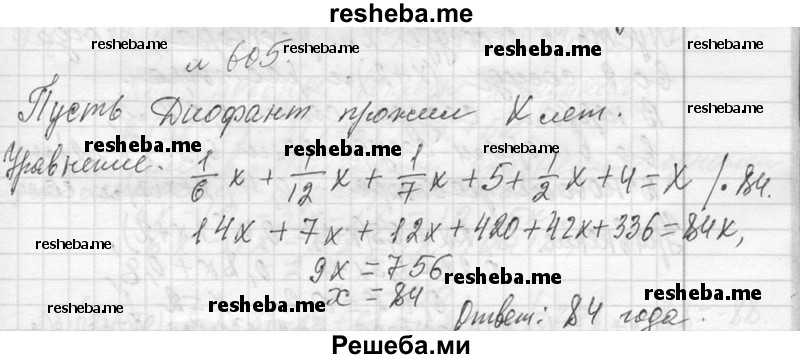 resheba.me
resheba.me resheba.me resheba.me resheba.me
№ 605.
Пусть Диофант прожил X лет. resheba.me
resheba.me resheba.me resheba.me
Уравнение. 1/6 x + 1/12 x + 1/7 x + 5 + 1/2 x + 4 = X /·84.
resheba.me
14x + 7x + 12x + 420 + 42x + 336 = 84x,
resheba.me
9x = 756 resheba.me
x = 84 resheba.me
resheba.me resheba.me
Ответ: 84 года.
Решеба.ми